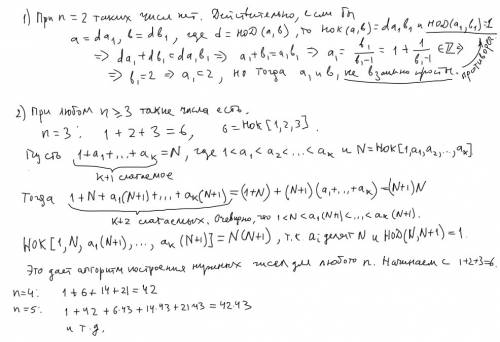 1) При n = 2 таких чисел нет. Действительно, если бы
a = da₁, b = db₁, где d = НОД(a, b), то НОК(a, b) = da₁b₁ и НОД(a₁, b₁) = 1
⇒ da₁ + db₁ = da₁b₁ ⇒ a₁ + b₁ = a₁b₁ ⇒ a₁ = b₁/(b₁-1) = 1 + 1/(b₁-1) ∈ ℤ ⇒
⇒ b₁ = 2 ⇒ a₁ = 2, но тогда a₁ и b₁ не взаимно прост. противореч
2) При любом n ≥ 3 такие числа есть.
n = 3: 1 + 2 + 3 = 6, 6 = НОК[1, 2, 3].
Пусть 1 + a₁ + ... + aₖ = N, где 1 < a₁ < a₂ < ... < aₖ и N = НОК[1, a₁, a₂, ..., aₖ]
k+1 слагаемое
Тогда 1 + N + a₁(N+1) + ... + aₖ(N+1) = (1+N) + (N+1)(a₁ + ... + aₖ) = (N+1)N
k+2 слагаемых. Очевидно, что 1 < N < a₁(N+1) < ... < aₖ(N+1).
НОК[1, N, a₁(N+1), ..., aₖ(N+1)] = N(N+1), т.к. aᵢ делят N и НОД(N, N+1) = 1.
Это дает алгоритм построения нужных чисел для любого n. Начинаем с 1+2+3=6.
n=4: 1 + 6 + 14 + 21 = 42
n=5: 1 + 42 + 6·43 + 14·43 + 21·43 = 42·43
и т.д.